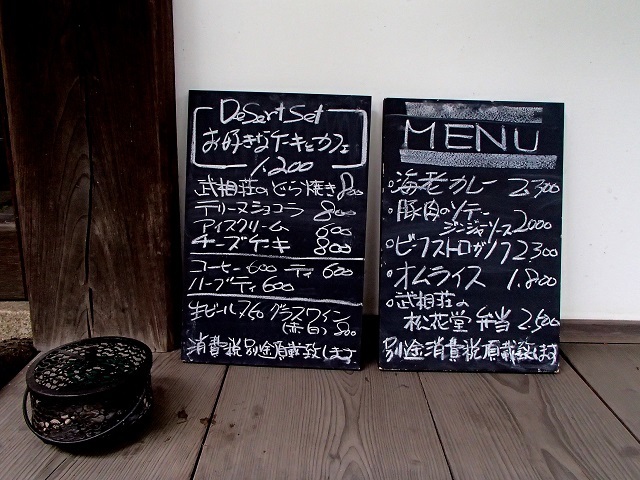 Desert Set
お好きなケーキとカフェ
1.200
武相荘のどら焼き 800
テリーヌショコラ 800
アイスクリーム 600
チーズケーキ 800
コーヒー 600 ティ 600
ハーブティ 600
生ビール グラスワイン
(赤白)
消費税別途頂戴致します
MENU
・海老カレー 2.300
・豚肉のソテー
ジンジャーソース 2000
・ビーフストロガノフ 2300
・オムライス 1.800
・武相荘の
松花堂弁当 2.500
別途消費税頂戴致します